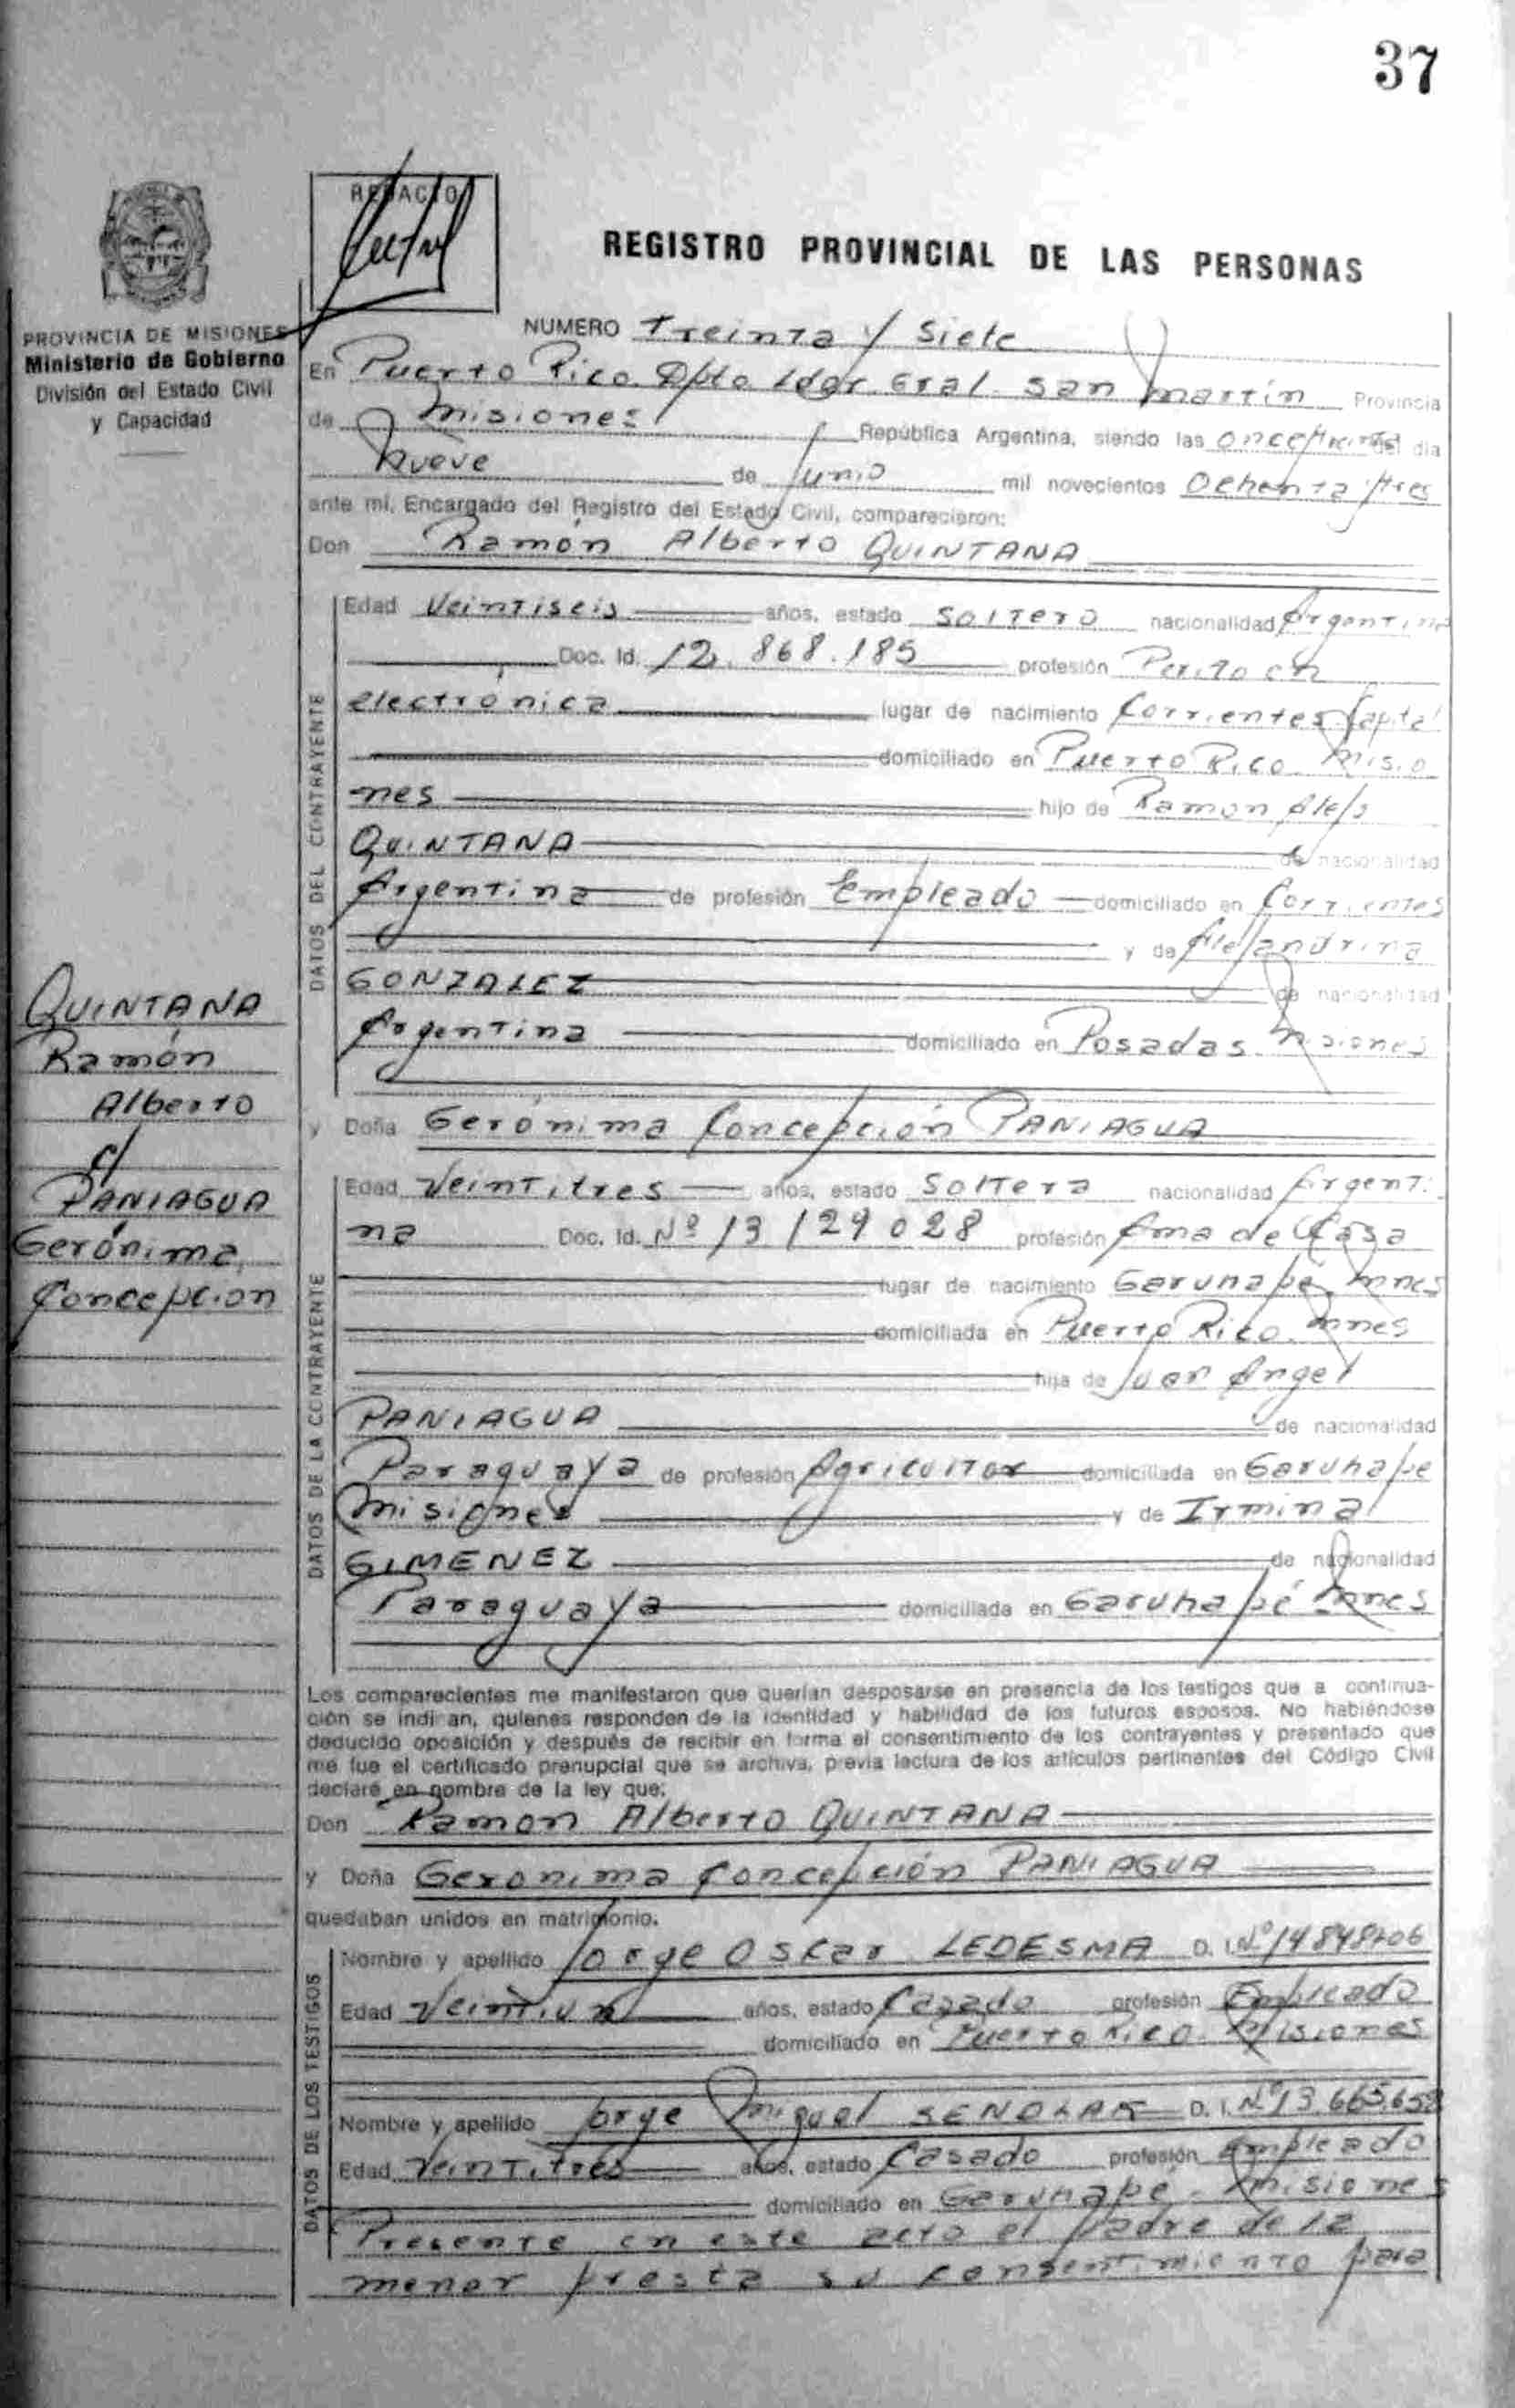 37
REDACTO
REGISTRO PROVINCIAL DE LAS PERSONAS
PROVINCIA DE MISIONES
Ministerio de Gobierno
División del Estado Civil
y Capacidad
NUMERO Treinta y Siete
En Puerto Rico Dpto Ldor. Gral. San martín Provincia
de misiones República Argentina, siendo las once/treinta del dia
nueve de Junio mil novecientos Ochenta y tres
ante mi, Encargado del Registro del Estado Civil, comparecieron:
Don Ramón Alberto QUINTANA
DATOS DEL CONTRAYENTE
Edad Veintiseis años, estado Soltero nacionalidad Argentina
Doc. Id. 12.868.185 profesión Perito en
electronica lugar de nacimiento Corrientes Capital
domiciliado en Puerto Rico Misio
nes hijo de Ramon Alejo
QUINTANA de nacionalidad
Argentina de profesión Empleado domiciliado en Corrientes
y de Alejandrina
GONZALEZ de nacionalidad
Argentina domiciliado en Posadas Misiones
y Doña Gerónima Concepción PANIAGUA
QUINTANA
Ramón
Alberto
c/
PANIAGUA
Gerónima
Concepcion
DATOS DE LA CONTRAYENTE
Edad Veintitres años, estado Soltera nacionalidad Argenti
na Doc. Id. Nº 13 129 028 profesión Ama de Casa
lugar de nacimiento Garuhapé Mnes
domiciliada en Puerto Rico Mnes
hija de Juan Angel
PANIAGUA de nacionalidad
Paraguaya de profesión Agricultor domiciliada en Garuhape
misiones y de Irmina
GIMENEZ de nacionalidad
Paraguaya domiciliada en Garuhapé Mnes
Los comparecientes me manifestaron que querían desposarse en presencia de los testigos que a continua-
ción se indican, quienes responden de la identidad y habilidad de los futuros esposos. No habiéndose
deducido oposición y después de recibir en forma el consentimiento de los contrayentes y presentado que
me fue el certificado prenupcial que se archiva, previa lectura de los artículos pertinentes del Código Civil
declaré en nombre de la ley que:
Don Ramon Alberto QUINTANA
y Doña Geronima Concepción PANIAGUA
quedaban unidos en matrimonio.
DATOS DE LOS TESTIGOS
Nombre y apellido Jorge Oskar LEDESMA D. I. Nº 14848206
Edad Veintiun años, estado Casado profesión Empleado
domiciliado en Puerto Rico Misiones
Nombre y apellido Jorge Miguel D. I. Nº 13.665.658
Edad Veintitres años, estado Casado profesión Empleado
domiciliado en Garuhapé - misiones
Presente en este acto el padre de la
menor presta su consentimiento para